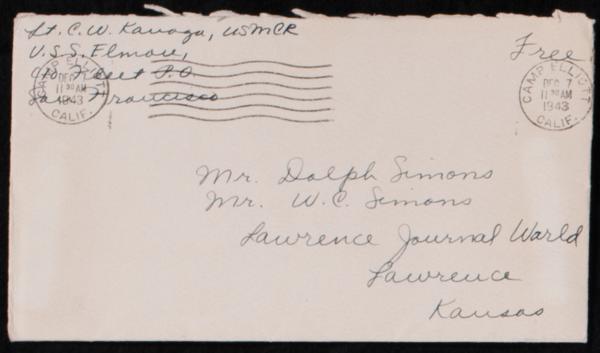 Lt. C. W. Kanaga, USMCR
U.S.S. Elmore,
c/o Fleet P.O.
San Francisco
Free
CAMP ELLIOTT
DEC 7
11 30 AM
1943
CALIF.
CAMP ELLIOTT
DEC 7
11 30 AM
1943
CALIF.
Mr. Dolph Simons
Mr. W. C. Simons
Lawrence Journal World
Lawrence
Kansas